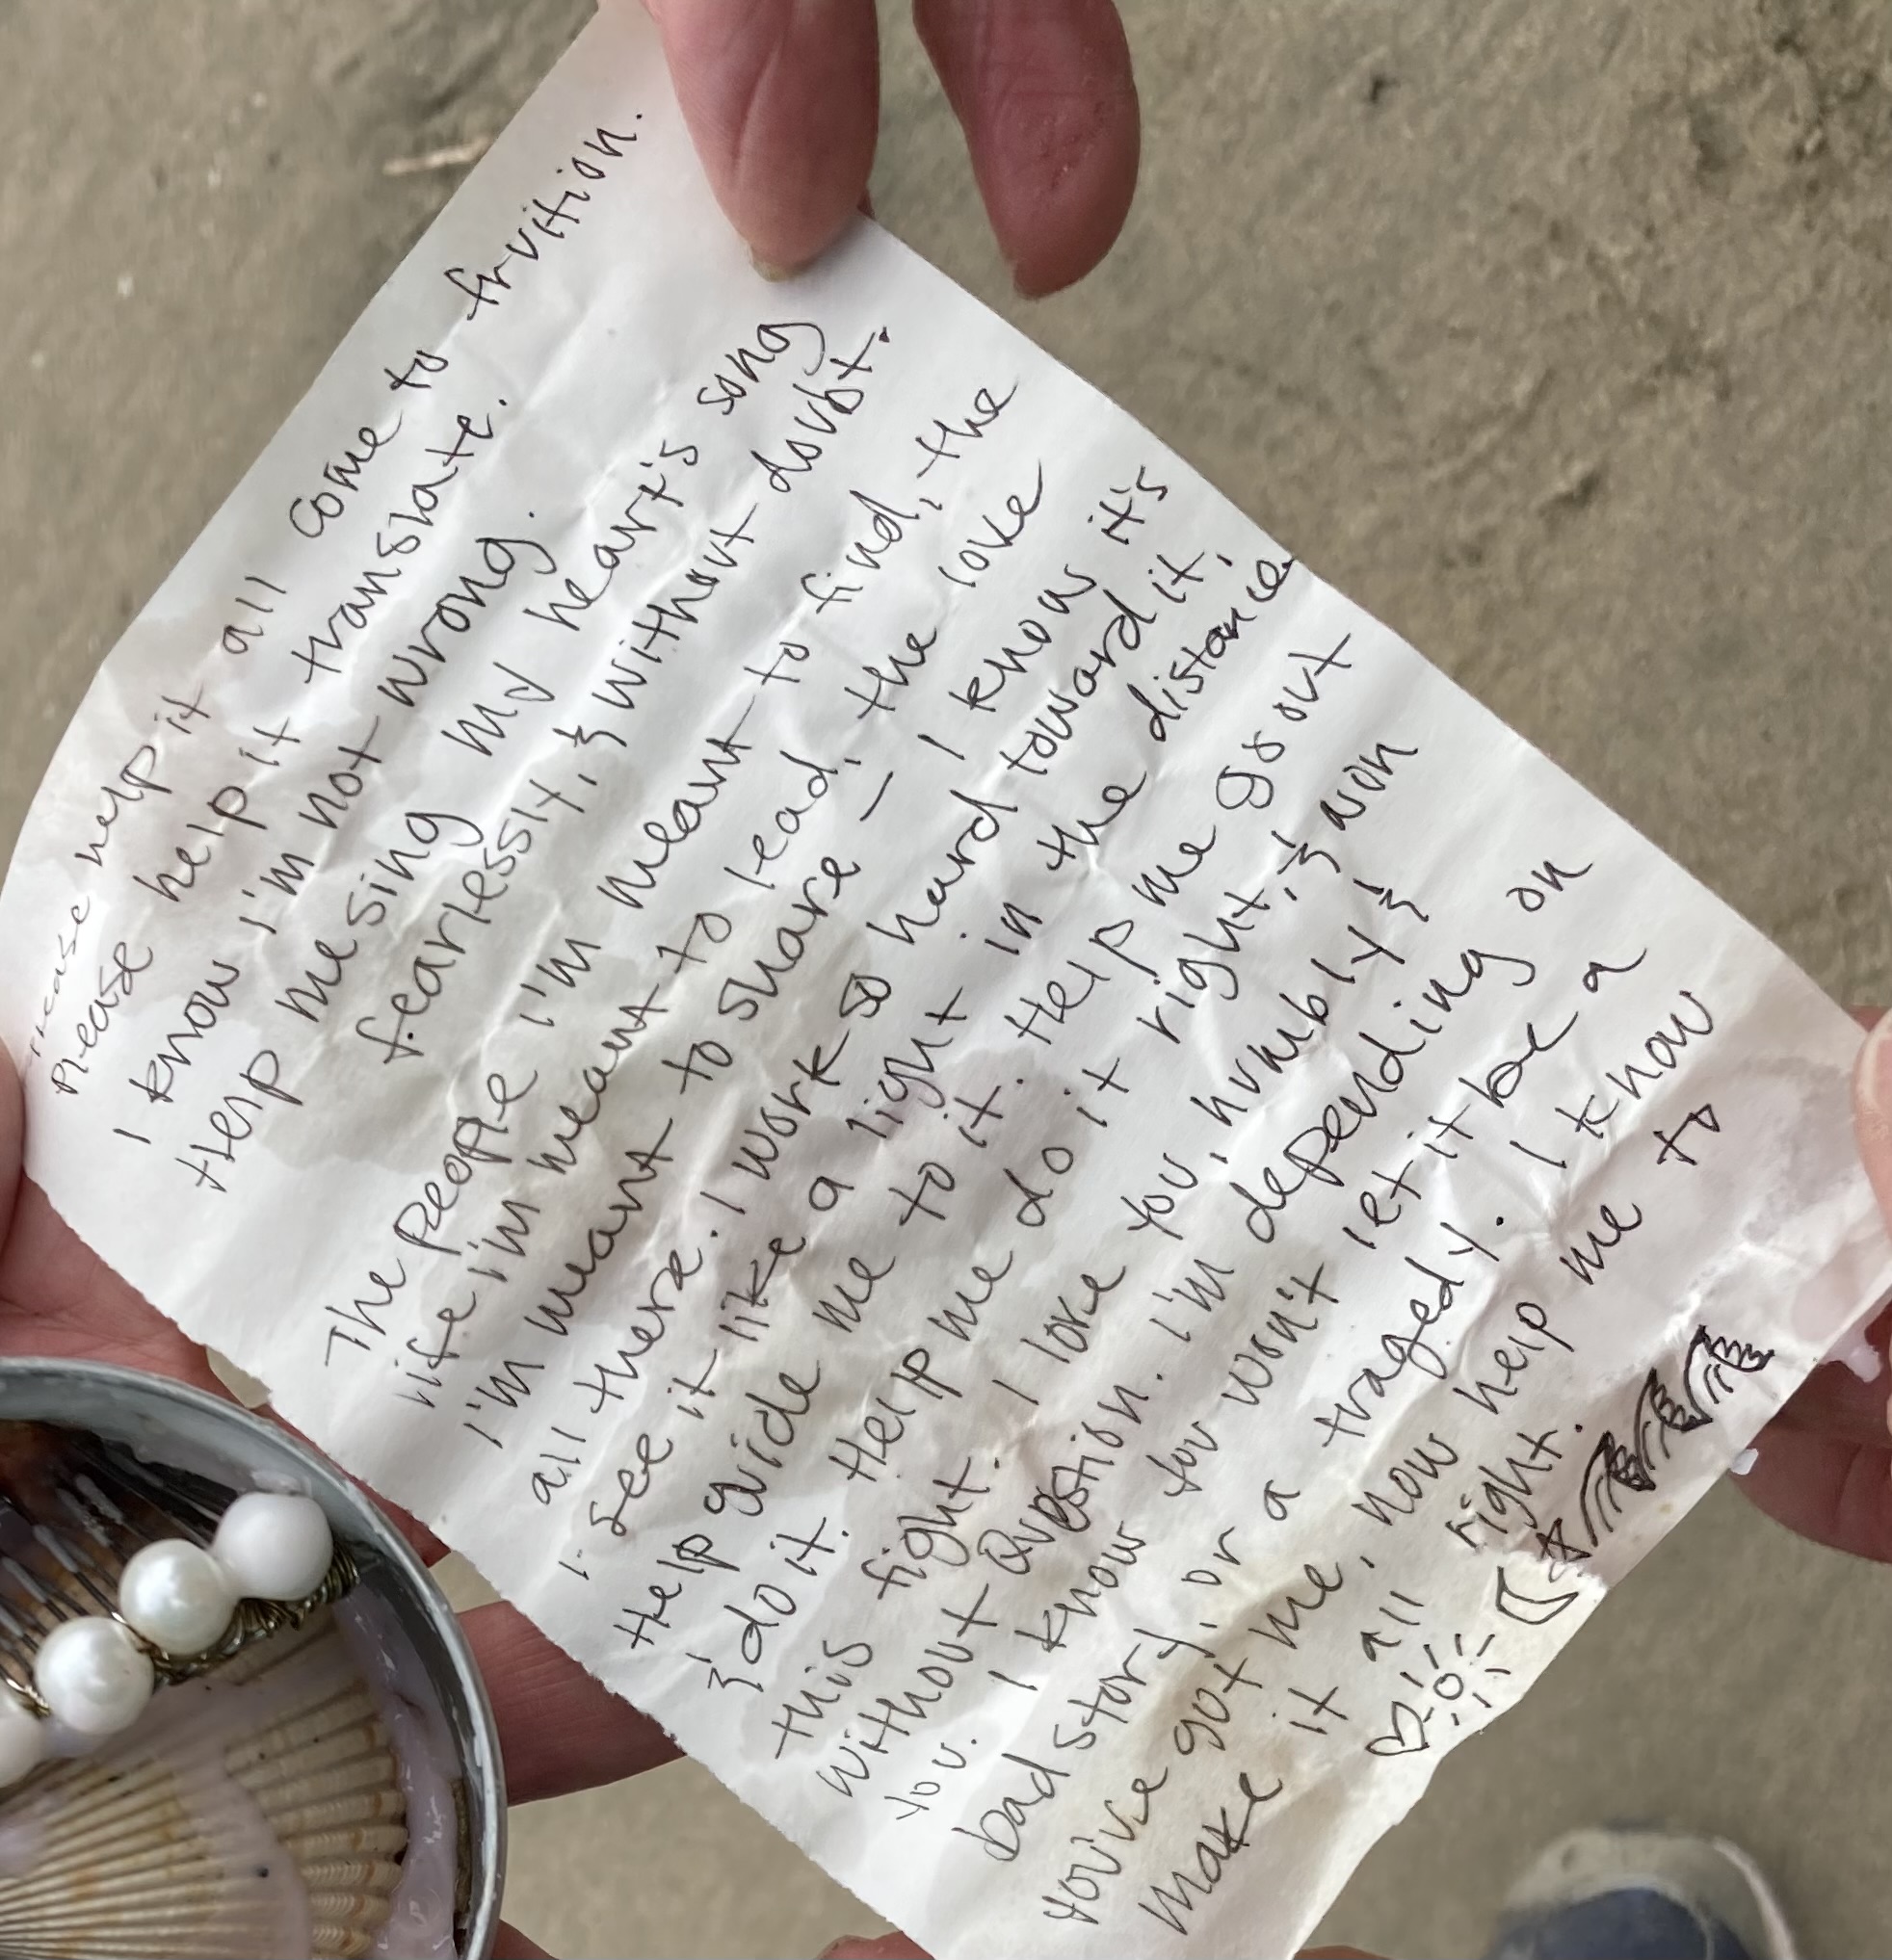 Please help it all come to fruition.
Please help it translate.
I know I'm not wrong.
Help me sing my heart's song
fearlessly, & without doubt.
The people I'm meant to find, the
life I'm meant to lead, the love
I'm meant to share — I know it's
all there. I work so hard toward it,
I see it like a light in the distance.
Help guide me to it. Help me go out
& do it. Help me do it right, & win
this fight. I love you, humbly &
without question. I'm depending on
you. I know you won't let it be a
bad story, or a tragedy. I know
you've got me, now help me to
make it all right.